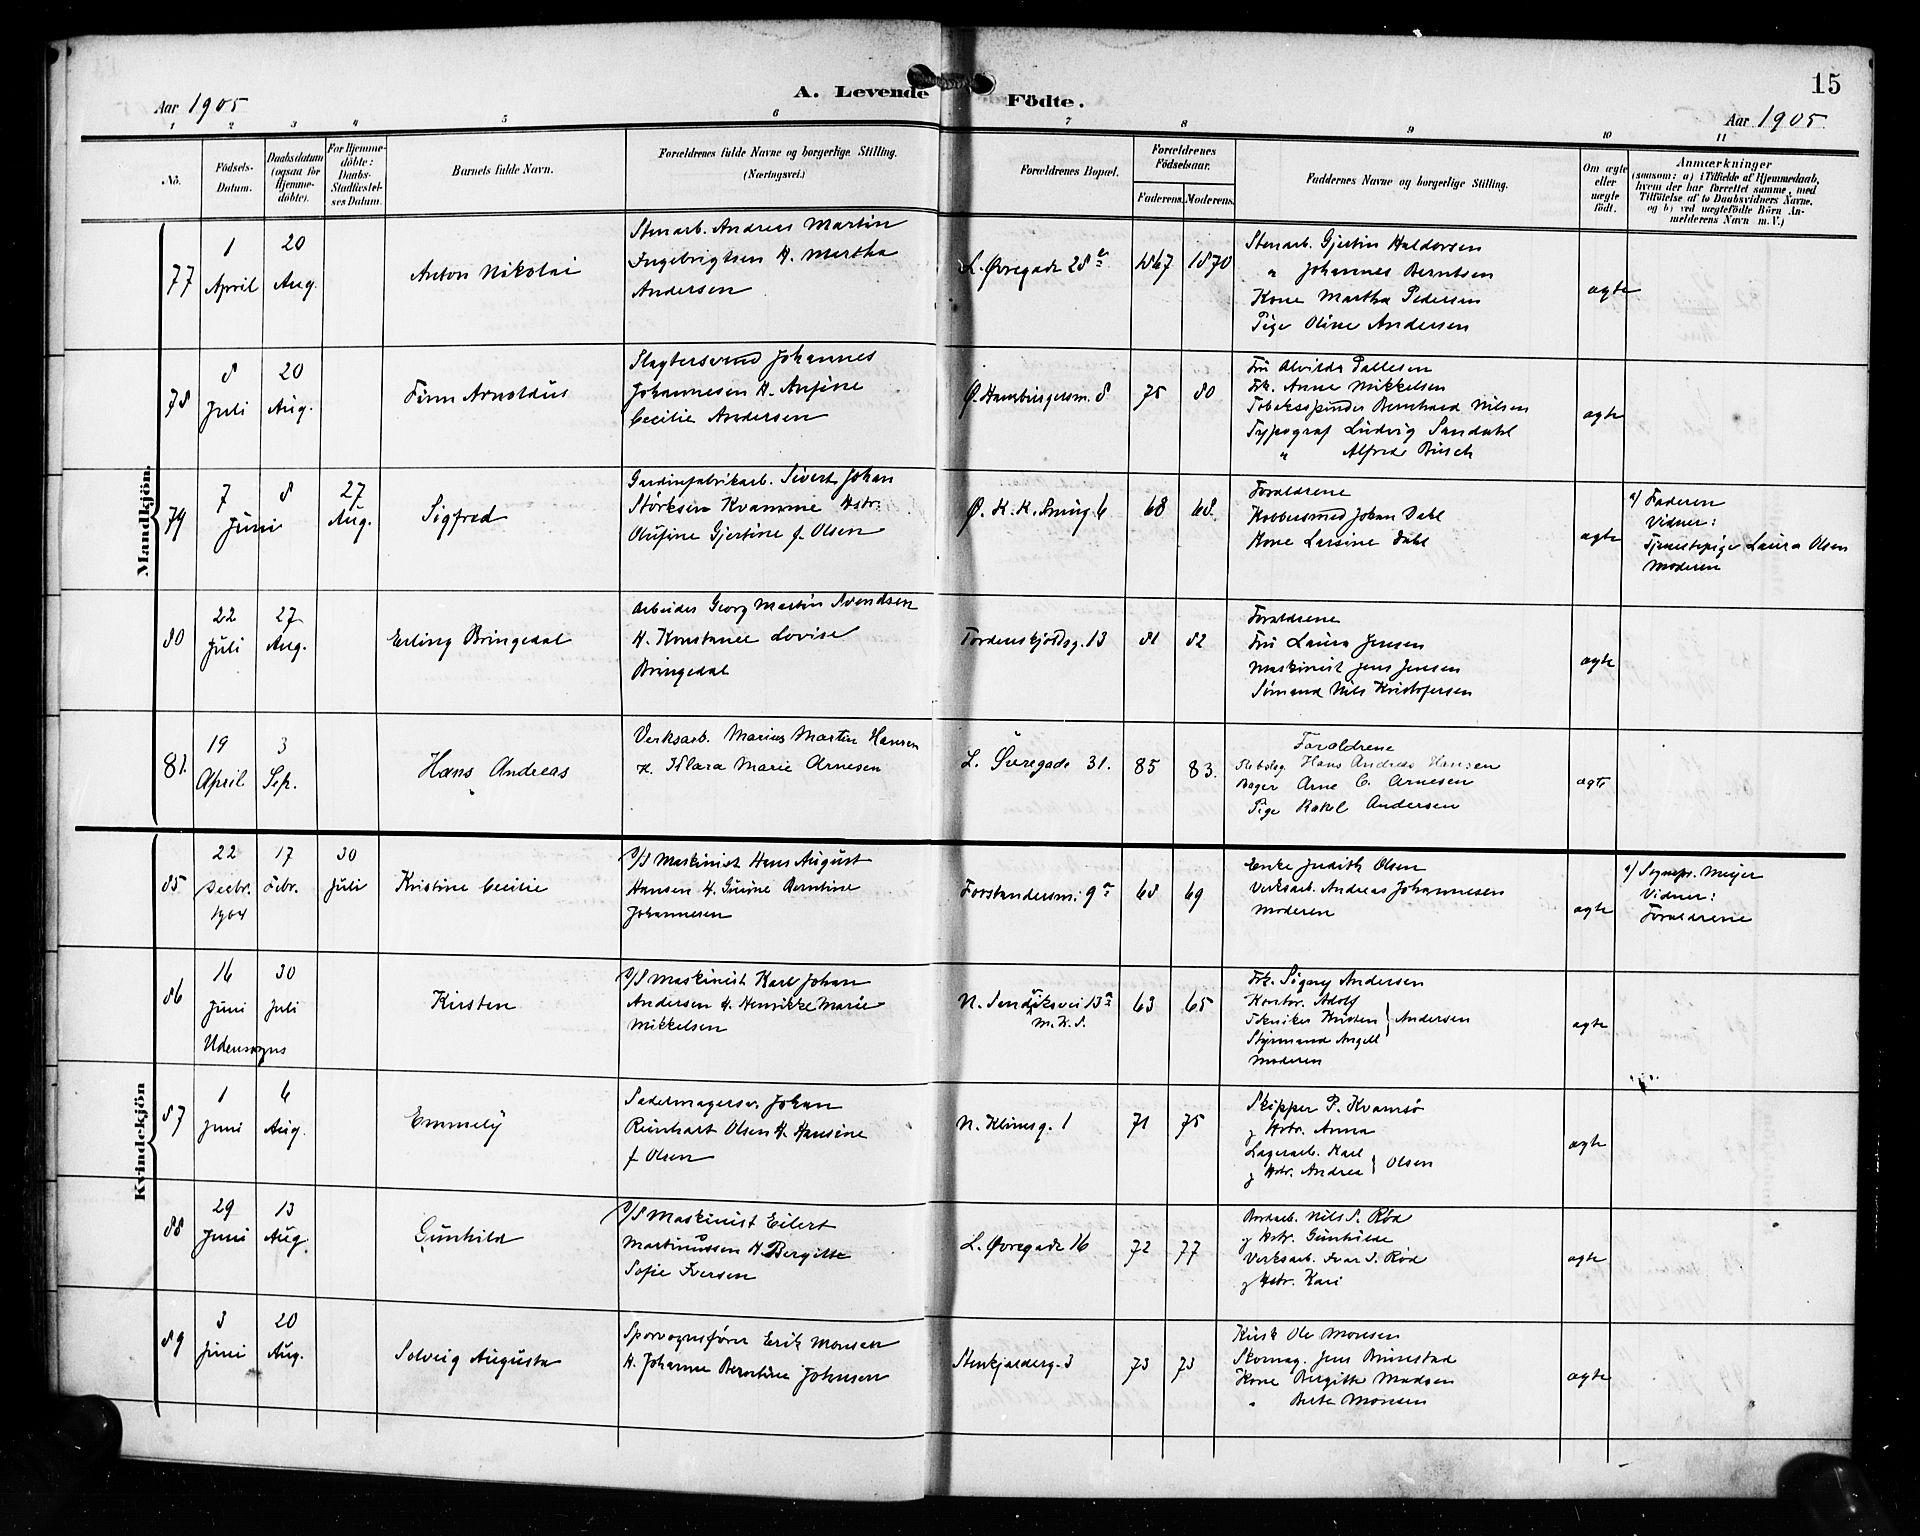 15
Aar 1905
A. Levende Födte.
Aar 1905
1 2 3 4 5 6 7 8 9 10 11
No.
Födsels-Datum.
Daabsdatum (ogsaa for Hjemmedöbte).
For Hjemmedöbte: Daabs-Stadfæstelses Datum.
Barnets fulde Navn.
Forældrenes fulde Navne og borgerlige Stilling. (Næringsvei.)
Forældrenes Bopæl.
Forældrenes Födselsaar.
Faderens. Moderens.
Faddernes Navne og borgerlige Stilling.
Om ægte eller uægte födt.
Anmærkninger
(saasom: a) i Tilfælde af Hjemmedaab, hvem der har forrettet samme, med Tilföielse af to Daabsvidners Navne. og b) ved uægtefödte Börn Anmelderens Navn m. V.)
Mandkjön.
77
1 April
20 Aug.
Anton Nikolai
Stenarb. Andreas Martin
Ingebrigtsen H. Martha
Andersen
L. Øvregade 28
1867 1870
Stenarb. Gjertin Haldorsen
" Johannes Berntsen
Kone Martha Pedersen
Pige Oline Andersen
ægte
78
8 Juli
20 Aug.
Finn Arnoldus
Slagtersvend Johannes
Johannesen H. Ansine
Cecilie Andersen
Ø. Hamburgersm. 8
75 80
Fru Alvilde Pallesen
Frk. Anne Mikkelsen
Tobaksspinder Bernhard Nilsen
Typograf Ludvig Sandahl
" Alfred Busch
ægte
79
7 8 Juni
27 Aug.
Sigfred
Gardinfabrikarb. Sivert Johan
Størksen Kvamme Hstr.
Olufine Gjertine f. Olsen
Ø. K. K. Smug 6
68 68.
Forældrene
Kobbersmed Johan Dahl
Kone Larsine Dahl
ægte
a) Faderen
Vidner:
Tjenestepige Laura Olsen
Moderen
80
22 Juli
27 Aug.
Erling Bringedal
Arbeider Georg Martin Svendsen
H. Konstance Lovise
Bringedal
Tordenskjoldsg. 13
81 82
Forældrene
Fru Laura Jensen
Maskinist Jens Jensen
Sømand Nils Kristofersen
ægte
81.
19 April
3 Sep.
Hans Andreas
Verksarb. Marius Martin Hansen
H. Klara Marie Arnesen
L. Øvregade 31.
85 83.
Forældrene
Hans Andreas Hansen
Bager Arne C. Arnesen
Pige Rakel Andersen
ægte
Kvindekjön
85
22 Decbr. 1904
17 Febr.
30 Juli
Kristine Cecilie
D/S Maskinist Hans August
Hansen H. Gurine Berntine
Johannesen
Forstandersm. 9a
68 69
Enke Judith Olsen
Verksarb. Andreas Johannesen
Moderen
ægte
a) Sognepr. Meyer
Vidner:
Forældrene
86
16 Juni
30 Juli
Udensogns
Kirsten
D/S Maskinist Karl Johan
Andersen H. Henrikke Marie
Mikkelsen
N. Sandviksvei 13a
M. K. S.
63 65
Frk. Signy Andersen
Kontor. Adolf
Tekniker Kristen } Andersen
Styrmand Angell
Moderen
ægte
87
1 Juni
6 Aug.
Emmely
Sadelmagersv. Johan
Reinhart Olsen H. Hansine
f. Olsen
N. Klinesg. 1
71 75
Skipper P. Kvamsø
og Hstr. Anna
Lagerarb. Karl
og Hstr. Andrea } Olsen
ægte
88
29 Juni
13 Aug.
Gunhild
D/S Maskinist Eilert
Martinussen H. Bergitte
Sofie Iversen
L. Øvregade 16
72 77
Bordarb. Nils S. Rød
og Hstr. Gunhilde
Verksarb. Ivar S. Rød
og Hstr. Kari
ægte
89
3 Juni
20 Aug.
Solveig Augusta
Sporvognsfører Erik Monsen
H. Johanne Berntine Johnsen
Stenkjælderg. 3
73 73
Kusk Ole Monsen
Skomag. Jens Brunstad
Kone Bergitte Madsen
" Berta Monsen
ægte